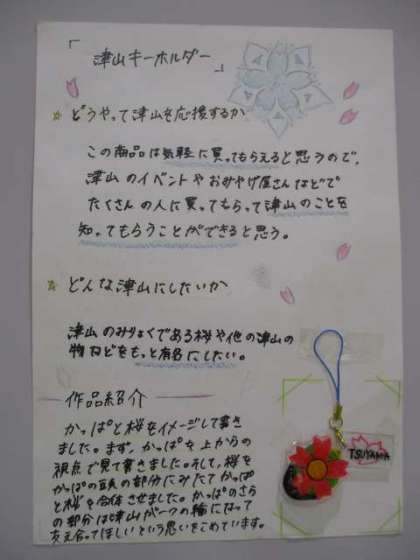 「津山キーホルダー」
☆ どうやって津山を応援するか
この商品は気軽に買ってもらえると思うので、
津山のイベントやおみやげ屋さんなどで
たくさんの人に買ってもらって津山のことを
知ってもらうことができると思う。
☆ どんな津山にしたいか
津山のみりょくである桜や他の津山の
物などをもっと有名にしたい。
作品紹介
かっぱと桜をイメージして書き
ました。まず、かっぱを上からの
視点で見て書きました。そして、桜を
かっぱの頭の部分にみたてかっぱ
と桜を合体させました。かっぱのさら
の部分は津山が一つの輪になって
支え合ってほしいという思いをこめています。
TSUYAMA